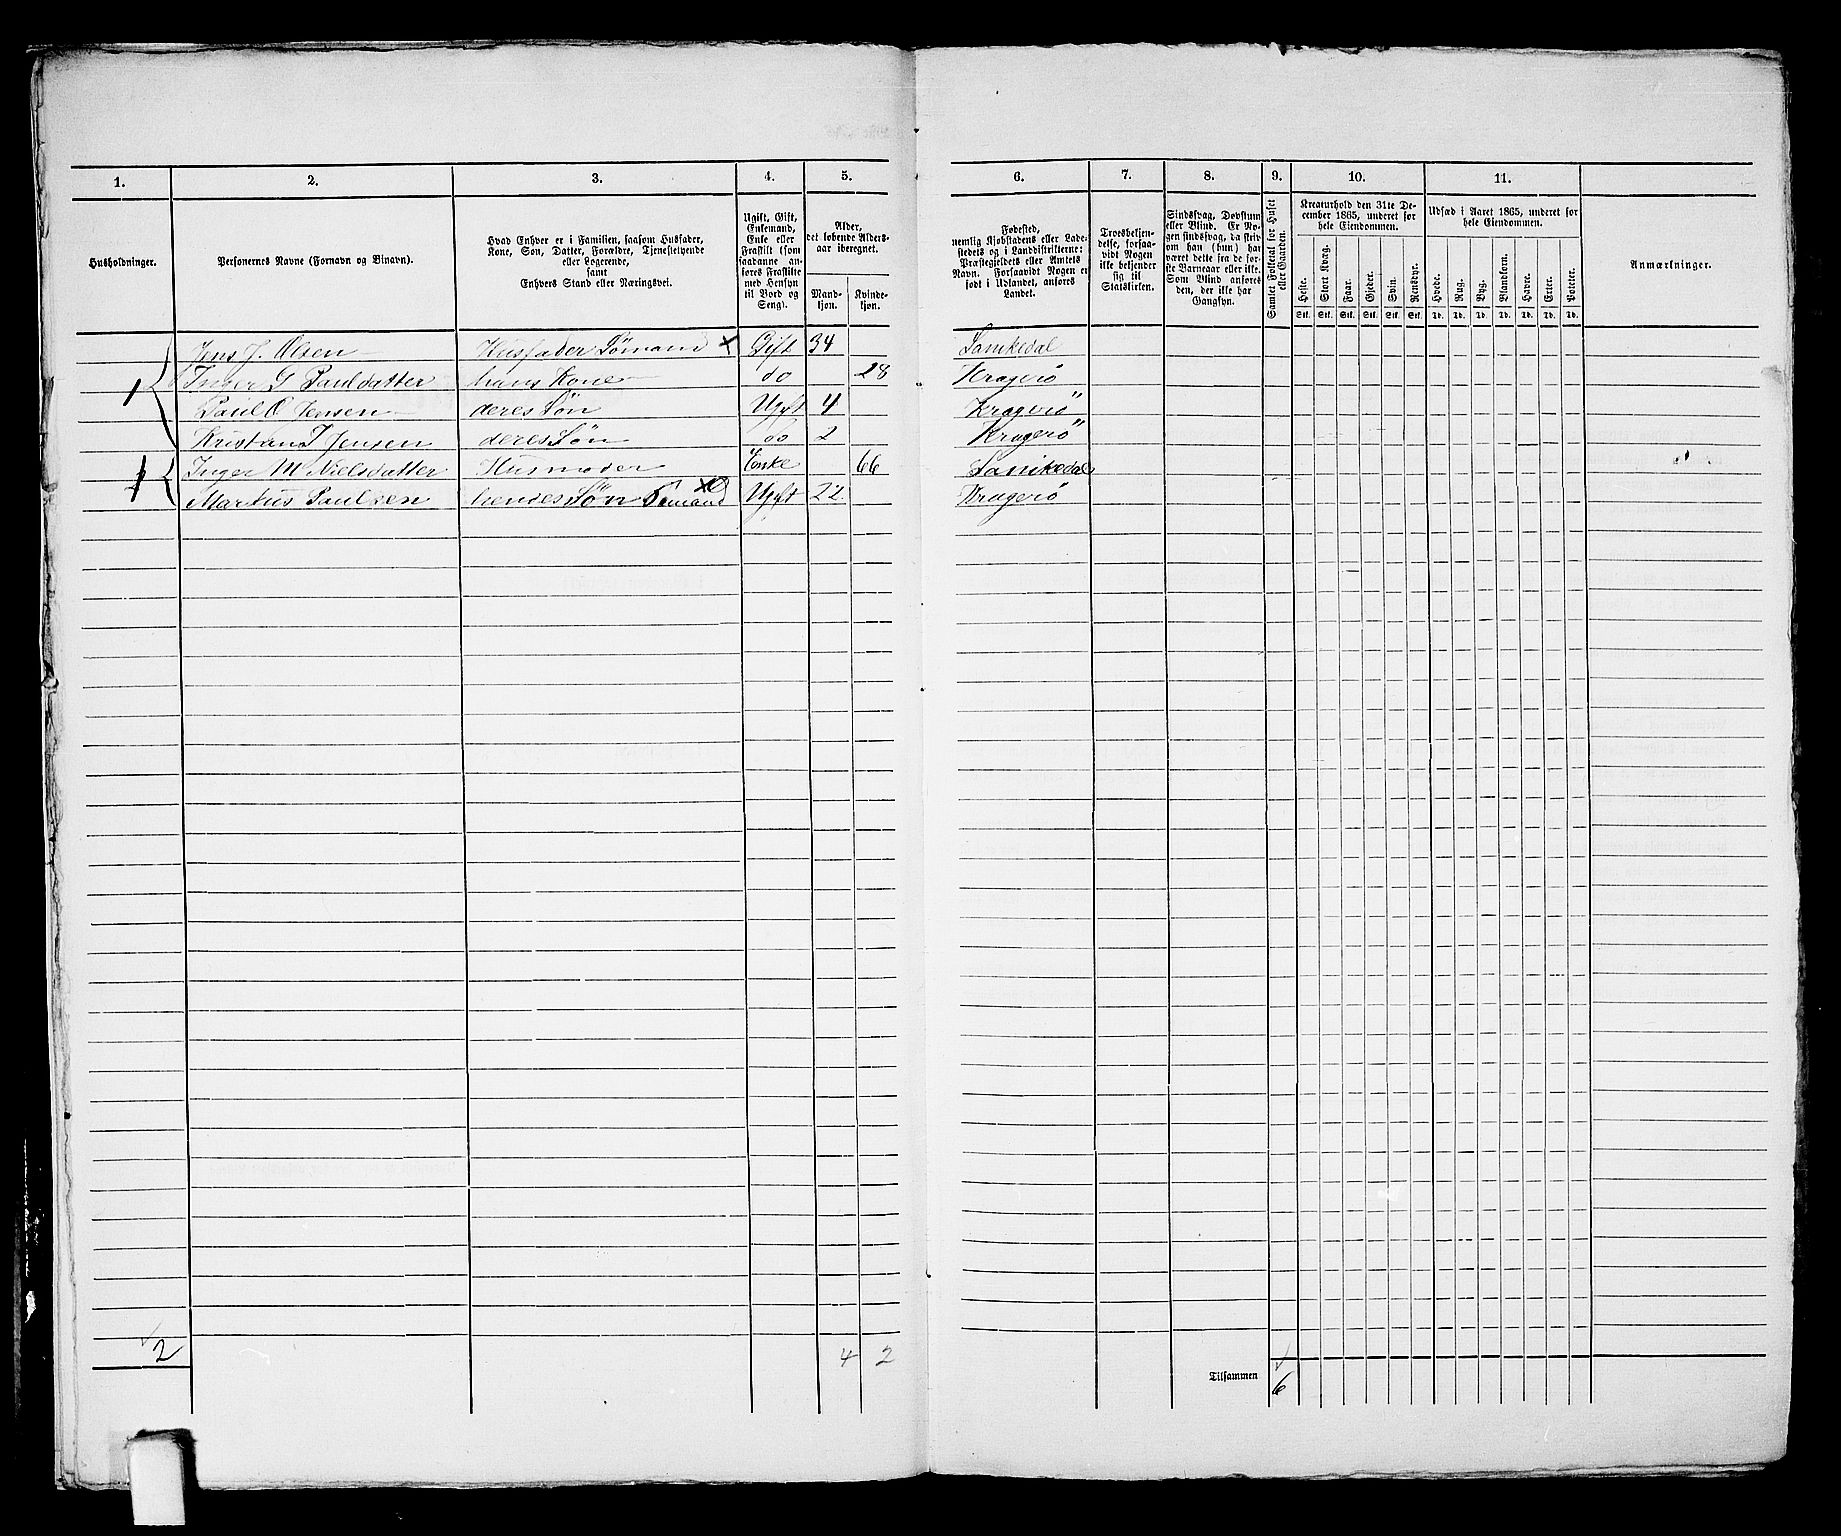 1. 2. 3. 4. 5. 6. 7. 8. 9. 10. 11.
Husholdninger.
Personernes Navne (Fornavn og Binavn).
Hvad Enhver er i Familien, saasom Husfader,
Kone, Søn, Datter, Forældre, Tjenestetyende
eller Logerende,
samt
Enhvers Stand eller Næringsvei.
Ugift, Gift,
Enkemand,
Enke eller
Fraskilt (som
saadanne an-
føres Fraskilte
med Hensyn
til Bord og
Seng).
Alder,
det løbende Alders-
aar iberegnet.
Mand-
kjøn.
Kvinde-
kjøn.
Fødested,
nemlig Kjøbstadens eller Lade-
stedets og i Landdistrikterne:
Præstegjeldets eller Amtets
Navn. Forsaavidt Nogen er
født i Udlandet, anføres
Landet.
Troesbekjen-
delse, forsaa-
vidt Nogen
ikke bekjender
sig til
Statskirken.
Sindssvag, Døvstum
eller Blind. Er No-
gen sindssvag, da skriv
om han (hun) har
været dette fra de før-
ste Barneaar eller ikke.
Som Blind anføres
den, der ikke har
Gangsyn.
Samlet Folketal for Huset
eller Gaarden.
Kreaturhold den 31te De-
cember 1865, underet for
hele Eiendommen.
Heste. Stort Kvæg. Faar. Gjeder. Svin. Rensdyr.
Stk. Stk. Stk. Stk. Stk. Stk.
Udsæd i Aaret 1865, underet for
hele Eiendommen.
Hvede. Rug. Byg. Blandkorn. Havre. Erter. Poteter.
Td. Td. Td. Td. Td. Td. Td.
Anmærkninger.
1 Jens J. Olsen Husfader Sømand x Gift 34 Sanikedal
Inger G Pauldatter hans Kone do 28 Kragerø
Paul O Jensen deres Søn Ugft 4 Kragerø
Kristian J Jensen deres Søn do 2 Kragerø
2 Inger M Nielsdatter Husmoder Enke 66 Sanikedal
Markus Paulsen hendes Søn Sømand Ugft 22 Kragerø
2 4 2 Tilsammen 6